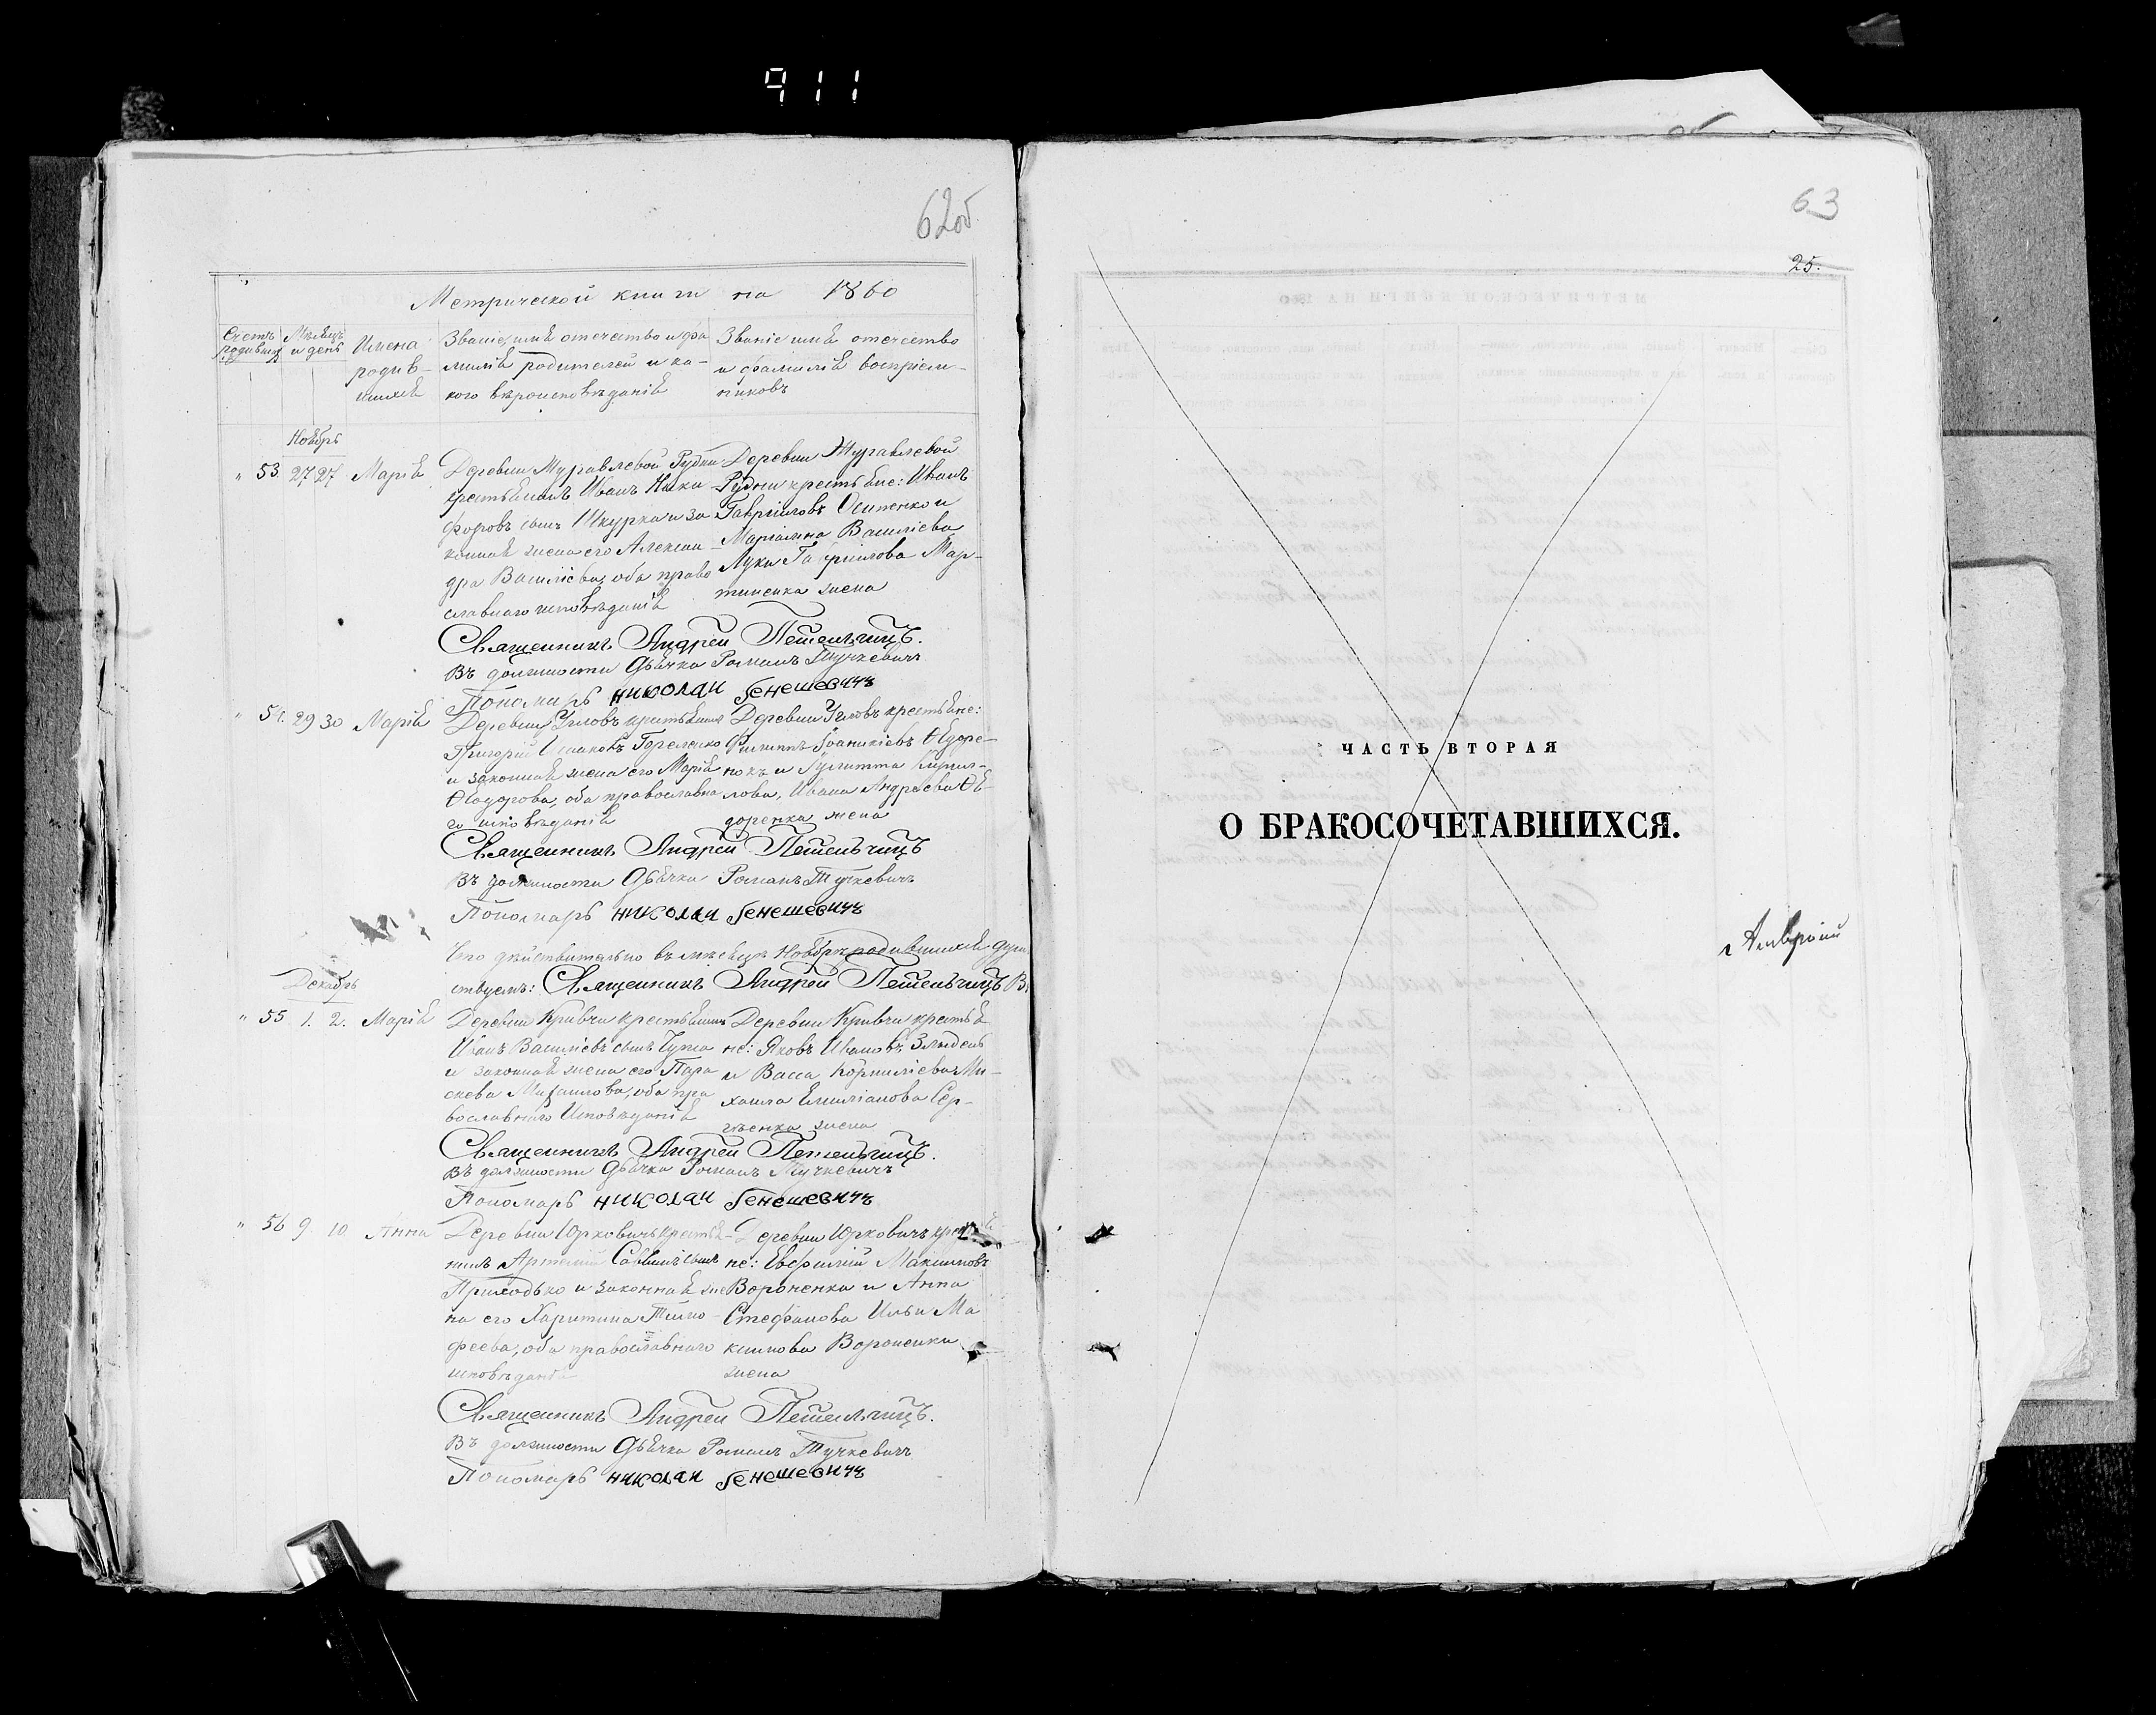 911
62об
Метрической книги на 1860
Счетъ родившихся
Мѣсяцъ и день
Имена родившихся
Званіе, имя отечество и фамилія родителей и какого вѣроисповѣданія
Званіе имя отечество и фамилія воспріемниковъ
Ноябрь
" 53. 27 27 Марія
Деревни Журавлевой Рудни
крестьянинъ Иванъ Ники-
форовъ сынъ Шкурка и за
конная жена его Алексан-
дра Василіева, оба право
славнаго исповѣданія
Деревни Журавлевой
Рудни крестьяне: Иванъ
Гавріиловъ Осипенко и
Маріанна Василіева
Луки Гавріилова Мар-
тиненка жена
Священникъ Андрей
Въ должности Дьячка Романъ Тучкевичъ
Пономарь Николай Генешевичъ
" 54. 29 30 Марія
Деревни Углов крестьянинъ
Григорій Гореленко
и законная жена его Марія
Ѳеодорова, оба православна
го исповѣданія
Деревни Углов крестьяне:
Филиппъ Іоаникіевъ Ѳедоре-
нокъ и Іулитта Кирил-
лова, Ивана Андреева Ѳе-
доренка жена
Священникъ Андрей
Въ должности Дьячка Романъ Тучкевичъ
Пономарь Николай Генешевичъ
Что дѣйствительно въ мѣсяцѣ Ноябрѣ родившихся
ствуемъ: Священникъ Андрей
Декабрь
" 55 1. 2. Марія
Деревни Кривчи крестьянинъ
Иванъ Василіевъ сынъ
и законная жена его Пара
скева Михаилова, оба пра
вославнаго Исповѣданія
Деревни Кривчи крестья
не: Яковъ Ивановъ Злыдень
и Васса Корниліева Ми-
хаила Емиліанова Сер-
гѣенка жена
Священникъ Андрей
Въ должности Дьячка Романъ Тучкевичъ
Пономарь Николай Генешевичъ
" 56 9. 10. Анна
Деревни Юрковичъ крестья-
нинъ Артемій Саввинъ сынъ
Приходько и законная же
на его Харитина Тимо-
феева, оба православнаго
исповѣданія
Деревни Юрковичъ
не: Евфимій Максимовъ
Вороненка и Анна
Стефанова Ильи Ма
ксимова Вороненка
жена
Священникъ Андрей
Въ должности Дьячка Романъ Тучкевичъ
Пономарь Николай Генешевичъ
63
25.
ЧАСТЬ ВТОРАЯ
О БРАКОСОЧЕТАВШИХСЯ.